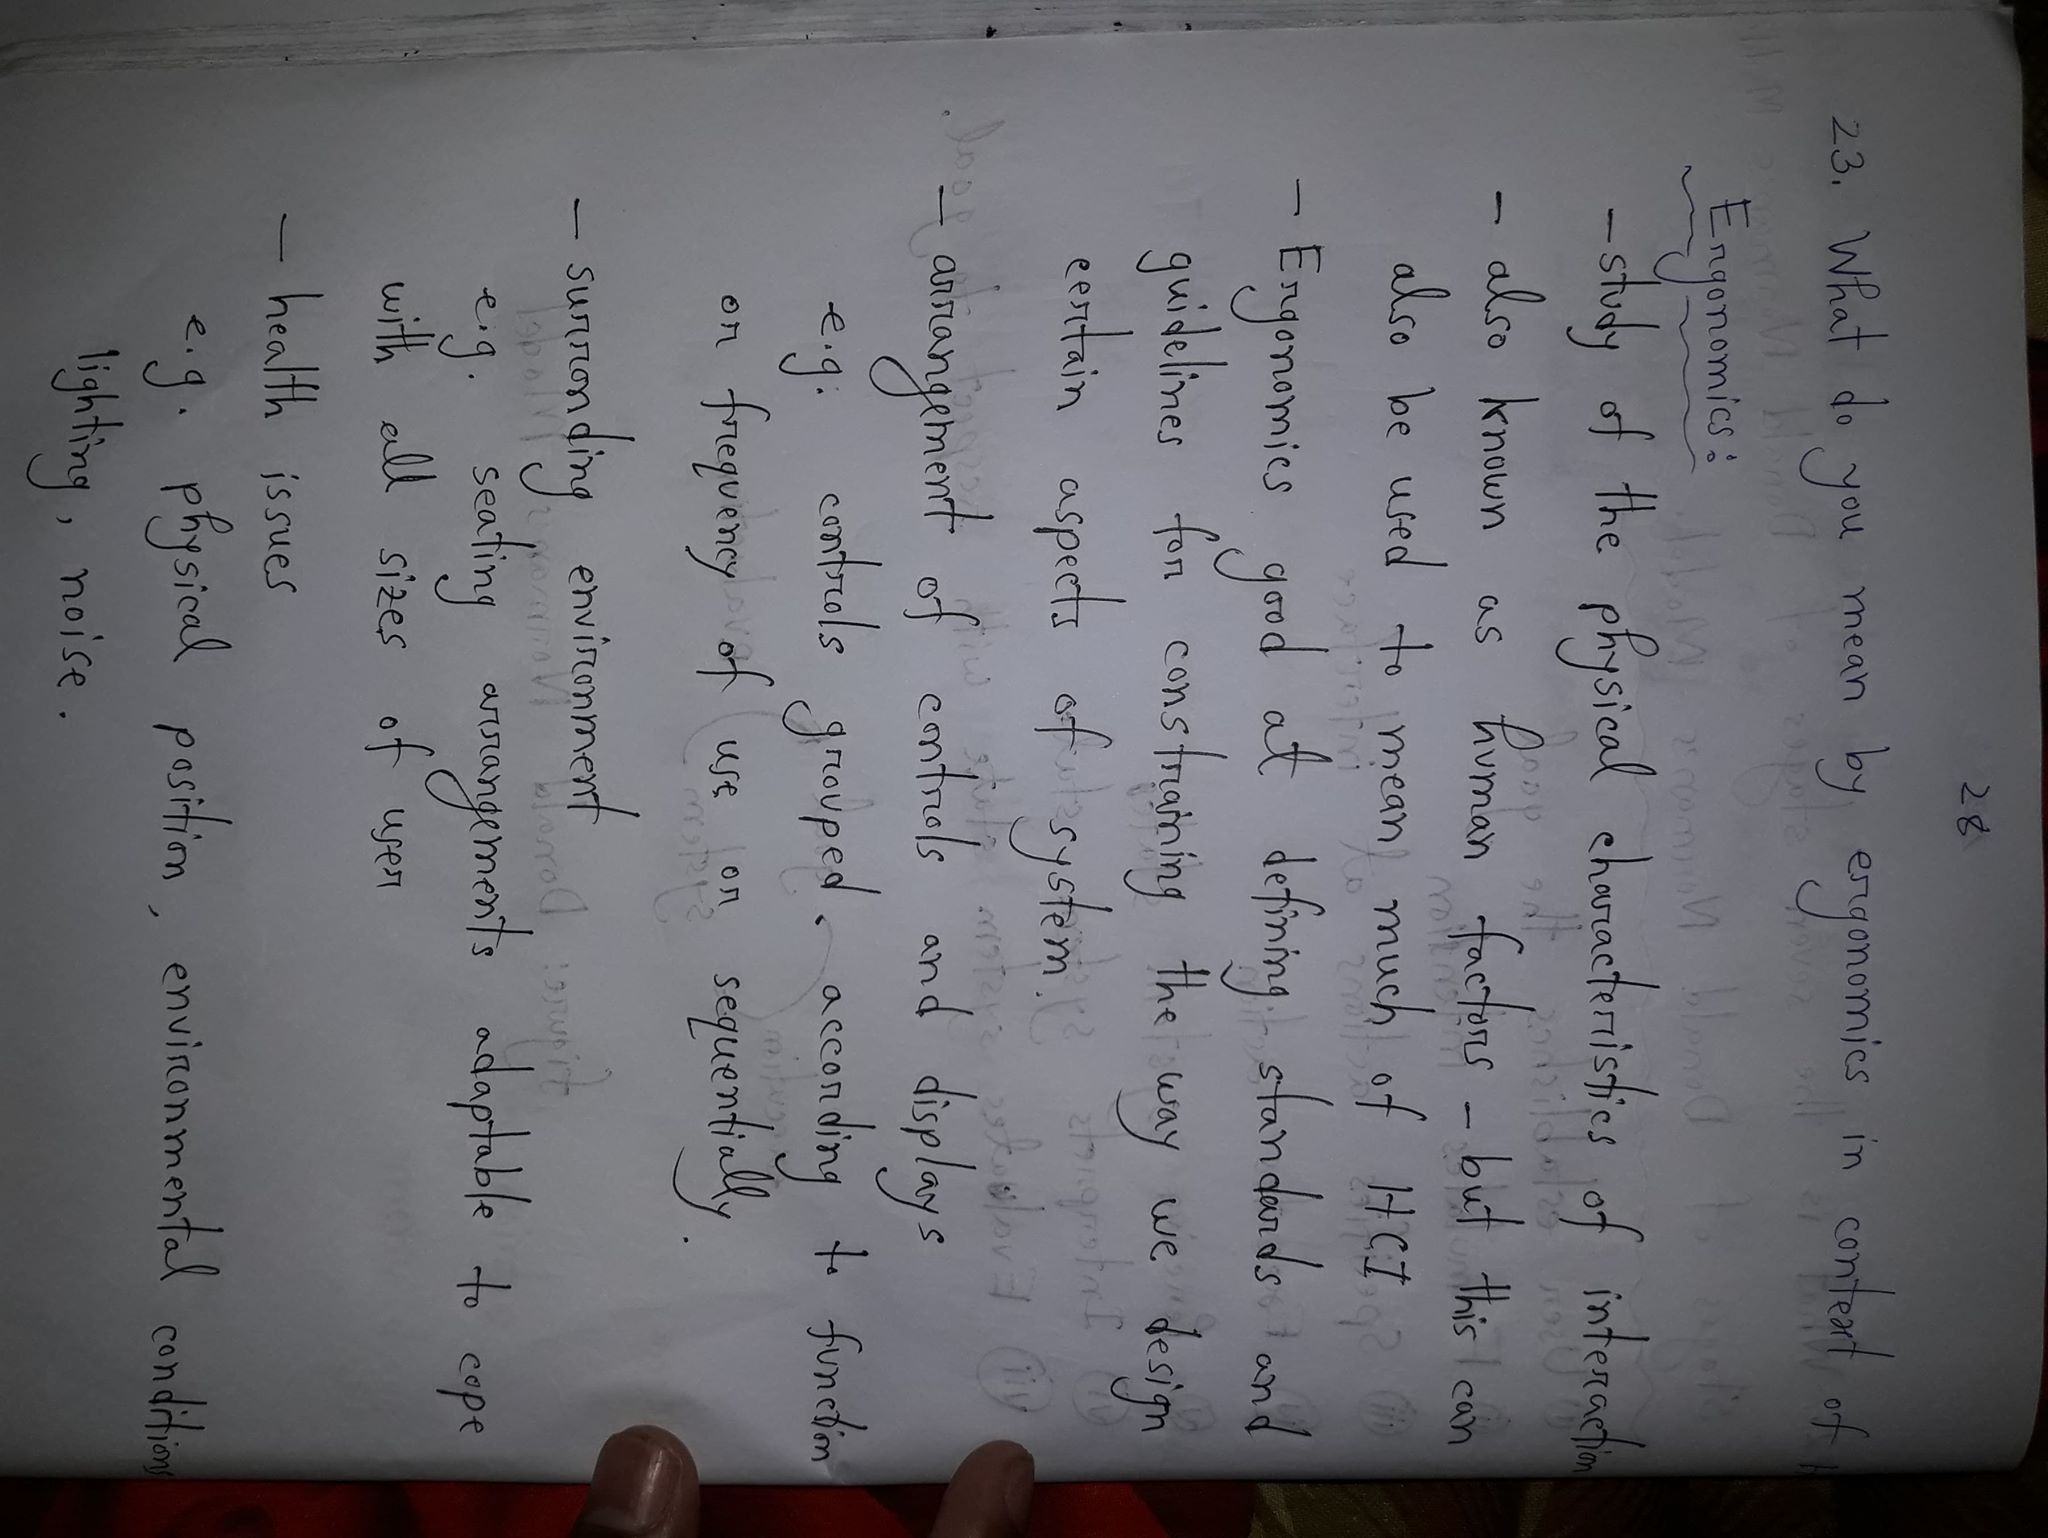 28
23. What do you mean by ergonomics in context of
Ergonomics:
- study of the physical characteristics of interaction
- also known as human factors - but this can
also be used to mean much of HCI
- Ergonomics good at defining standards and
guidelines for constraining the way we design
certain aspects of system.
- arrangement of controls and displays
e.g. controls grouped. according to function
or frequency of use or sequentially.
- surronding environment
e.g. seating arrangements adaptable to cope
with all sizes of user
- health issues
e.g. physical position, environmental conditions
lighting, noise.